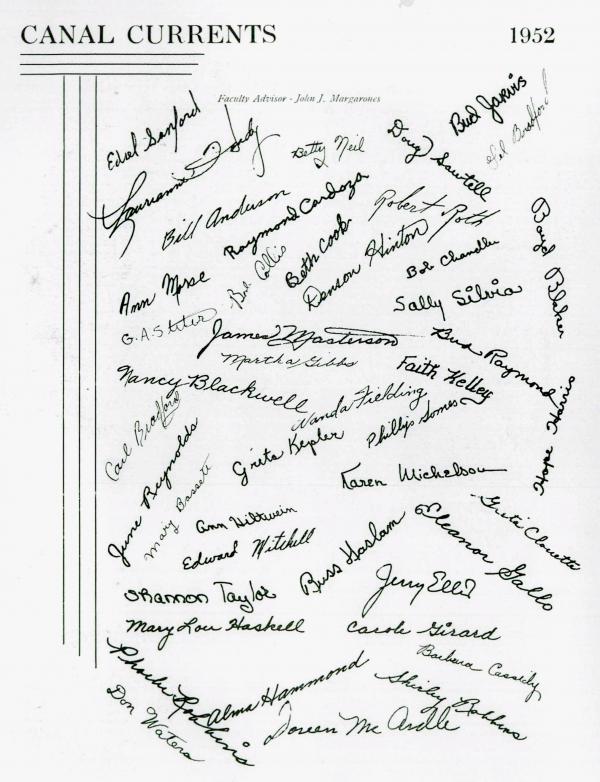 CANAL CURRENTS 1952
Faculty Advisor - John J. Margarones
Edsel Sanford
Betty Neil
Doug Sawtell
Bud Jarvis
Bradford
Bill Anderson
Raymond Cardoza
Robert Roth
Ann Morse
Bud Collis
Beth Cook
Denson Hinton
Bob Chandler
Boyd Blaker
G.A. Stiter
Sally Silvia
James Masterson
Martha Gibbs
Bud Raymond
Faith Kelley
Nancy Blackwell
Wanda Fielding
Phillip Somes
Hope Harris
Carl Bradford
Greta Kepler
June Reynolds
Mary Bassett
Karen Michelson
Ann Hiltwein
Greta Clouette
Edward Mitchell
Russ Haslam
Eleanor Gallo
Shannon Taylor
Jerry Ellis
Mary Lou Haskell
Carole Girard
Barbara Cassidy
Phoebe Robbins
Alma Hammond
Shirley Robbins
Don Waters
Doreen Mc Ardle